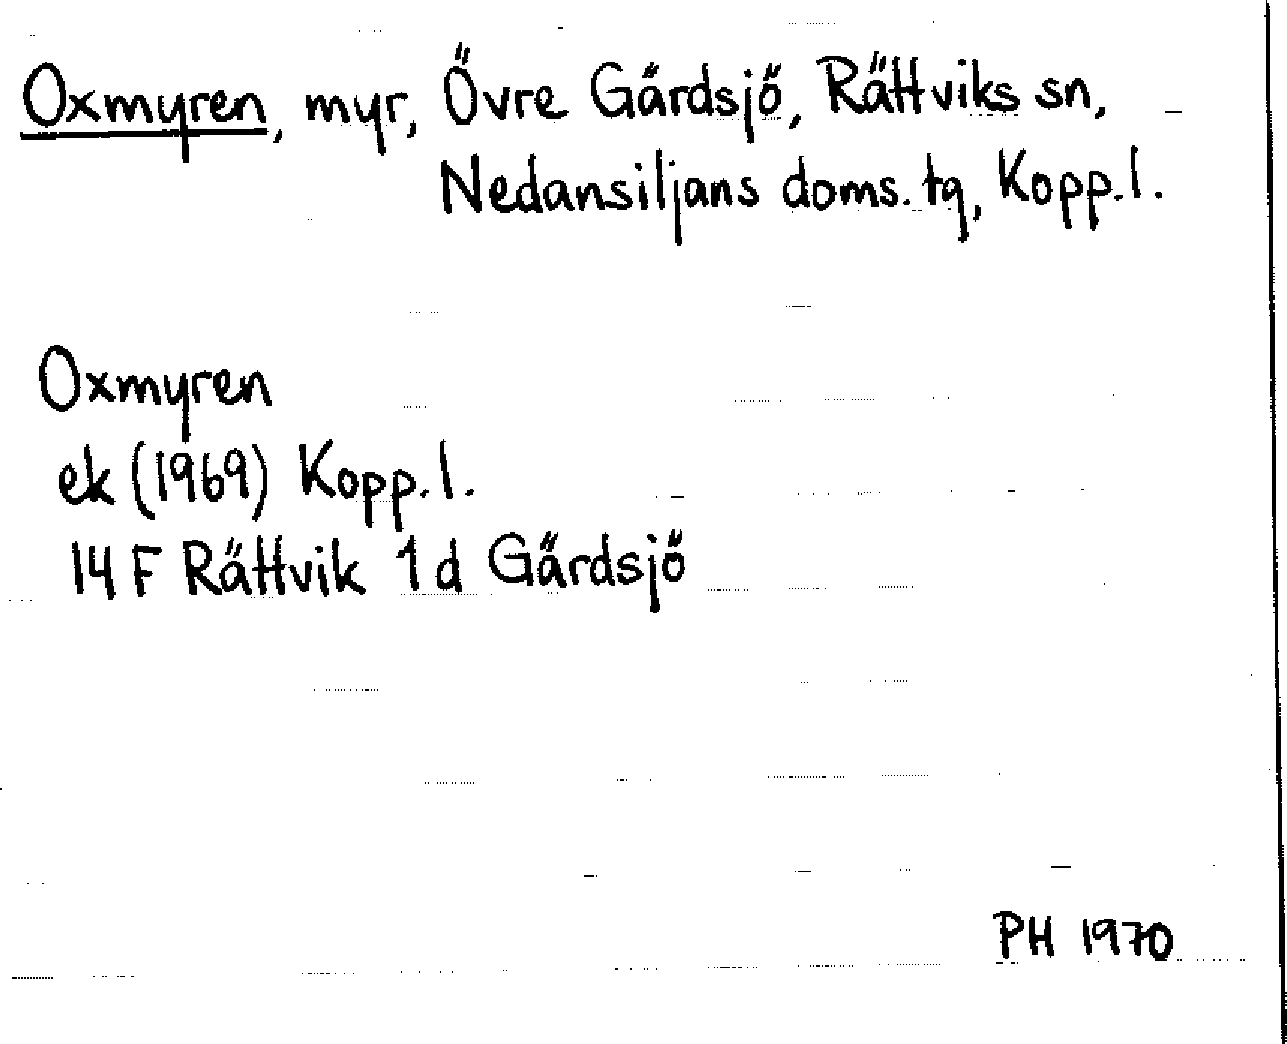 Oxmyren, myr, Övre Gärdsjö, Rättviks sn,
Nedansiljans doms. tg, Kopp. l.
Oxmyren
ek (1969) Kopp. l.
14 F Rättvik 1 d Gärdsjö
PH 1970